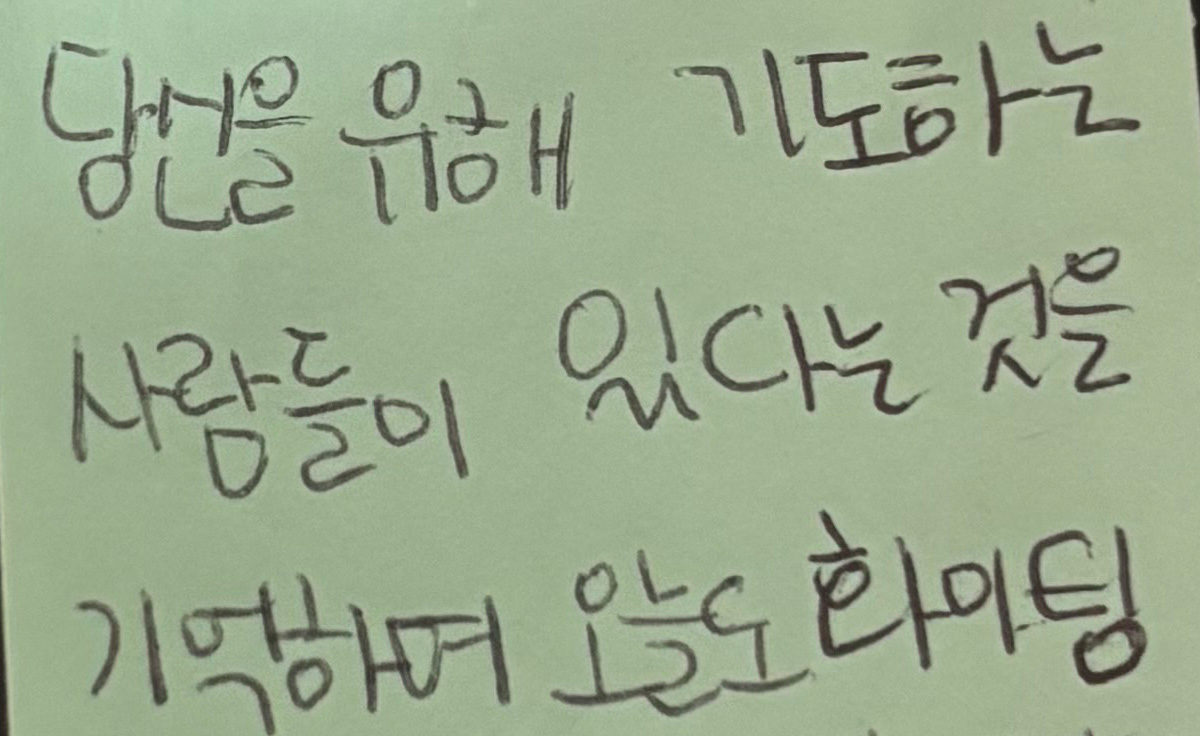 당신을 위해 기도하는
사람들이 있다는 것을
기억하며 오늘도 화이팅